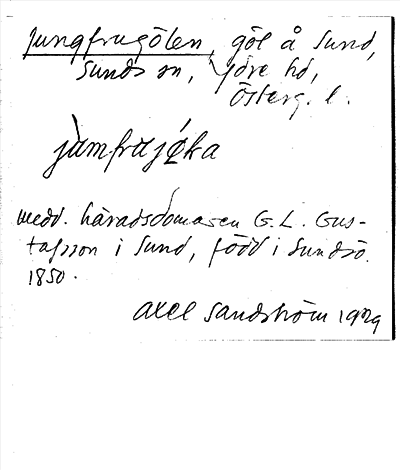 Jungfrugölen, göl å Sund,
Sunds sn, Ydre hd,
Österg. l.
jùmfrujǿka
medd. häradsdomaren G. L. Gus-
tafsson i Sund, född i Sundsö
1850.
Axel Sandström 1929